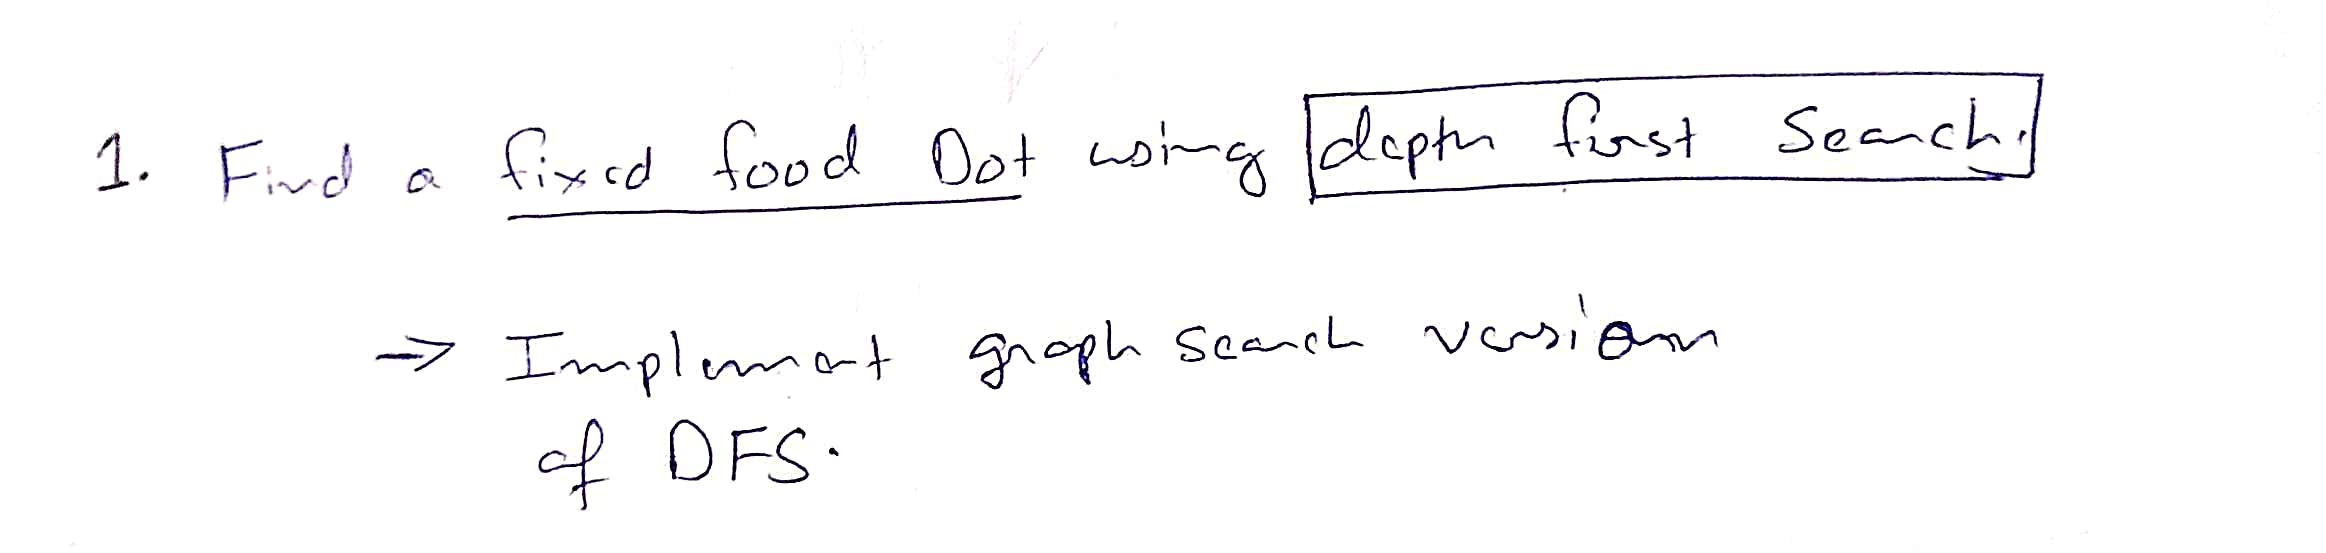 1. Find a fixed food Dot using depth first Search.
→ Implement graph search version
of DFS.